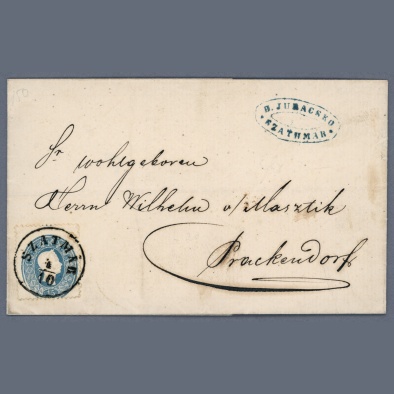 D. JURACSKO
SZATHMÁR.
Sr wohlgeboren
Herrn Wilhelm v/Masztik
Prackendorf
SZATMÁR
4
10